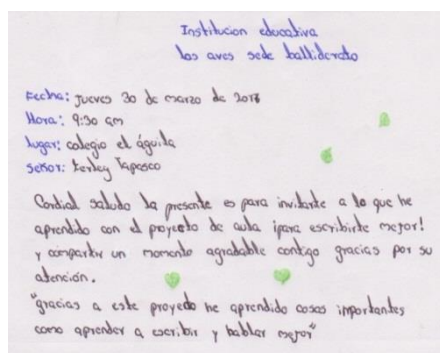 Institucion educativa
las aves sede balliderato
Fecha: jueves 30 de marzo de 2017
Hora: 9:30 am
lugar: colegio el águila
señor: Kerley Tapasco
Cordial saludo la presente es para invitarte a lo que he
aprendido con el proyecto de aula ¡para escribirte mejor!
y compartir un momento agradable contigo gracias por su
atención.
"gracias a este proyecto he aprendido cosas importantes
como aprender a escribir y hablar mejor"